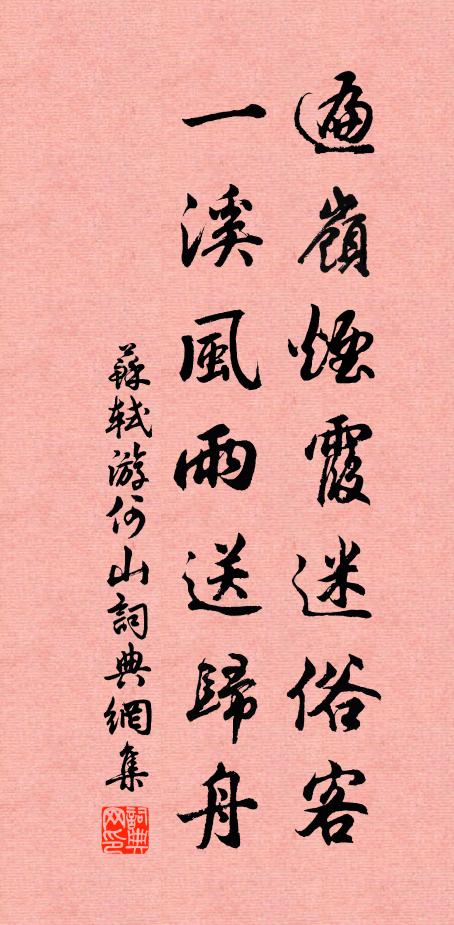 遍嶺煙霞迷俗客
一溪風雨送歸舟
蘇軾游何山詞典網集
詞典网印